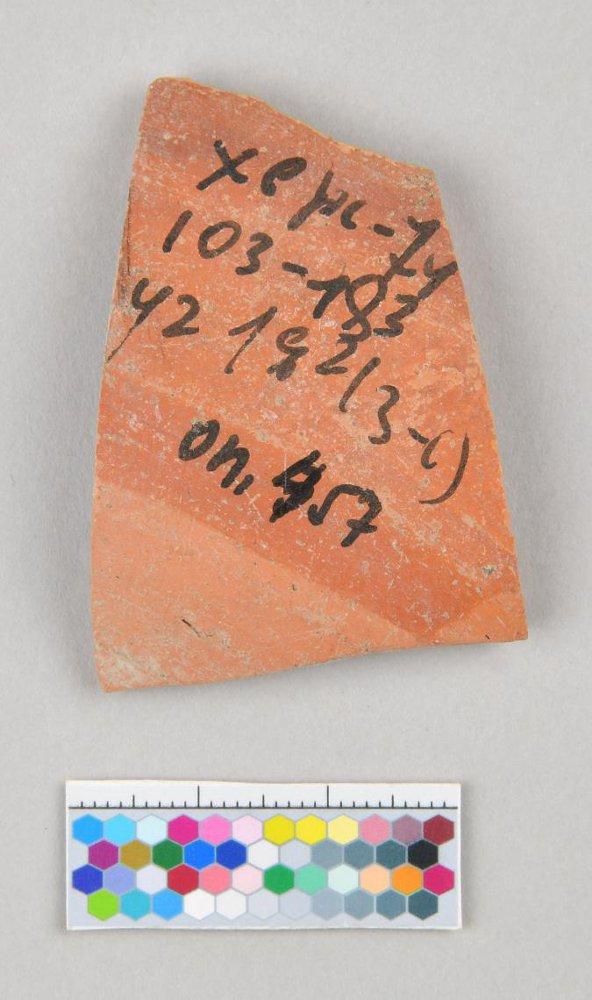 Херс-74
103-183
у2 1g2(3-С)
оп. 457